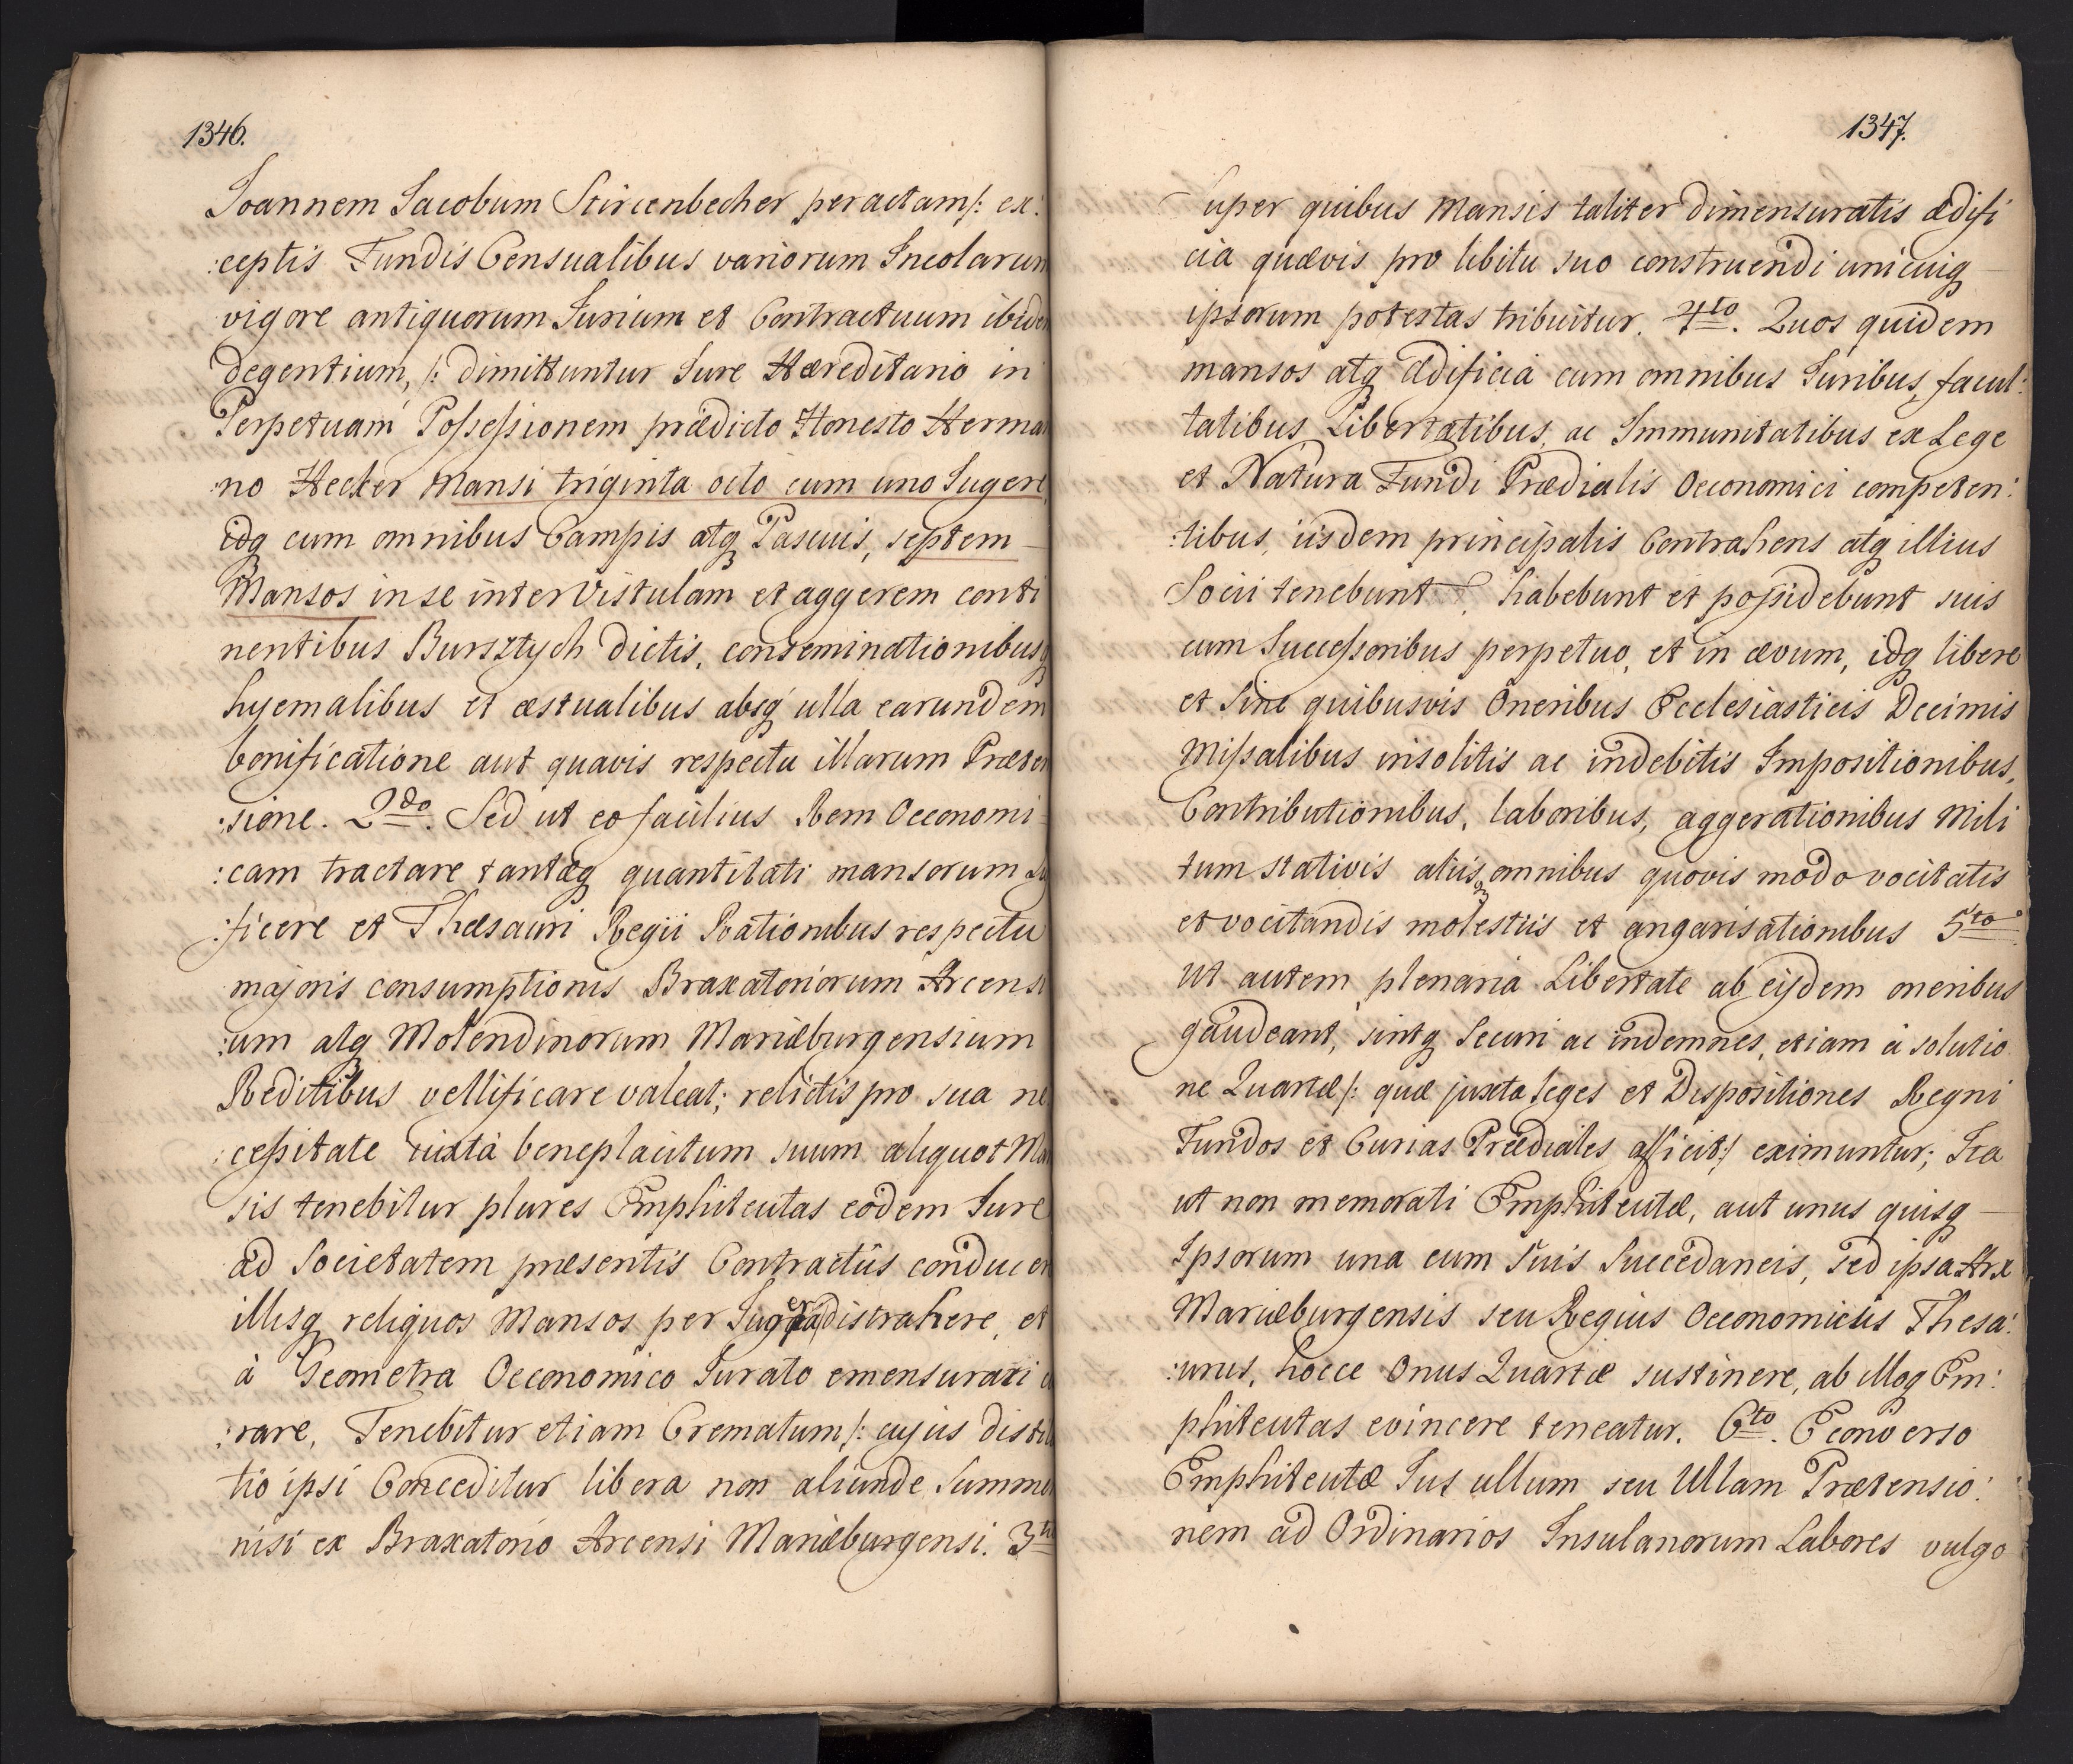 1346.
Joannem Jacobum Stircenbecher peractam /: ex:
:ceptis Fundis Censualibus variorum Incolarum
vigore antiquorum Jurium et Contractuum ibidem
degentium, /: dimittuntur Jure Hæreditario in
Perpetuam Possessionem prædicto Honesto Herma
:no Hecker Mansi triginta octo cum uno Jugere,
idq cum omnibus Campis atq Pascuis, septem
Mansos in se inter Vistulam et aggerem conti
nentibus Bursztych dictis, conseminationibusq
hyemalibus et æstualibus absq ulla earundem
bonificatione aut quavis respectu illarum Præten
:sione. 2do. Sed ut eo facilius Rem Oeconomi
:cam tractare tantæq quantitati mansorum su
:ficere et Thæsauri Regii Rationibus respectu
majoris consumptionis Braxatoriorum Arcensi
:um atq Molendinorum Mariæburgensium
Reditibus vellificare valeat; relictis pro sua ne
:cessitate iuxta beneplacitum suum aliquot Man
sis tenebitur plures Emphiteutas eodem Jure
ad Societatem præsentis Contractûs conducere
illisq reliquos Mansos per Jugera distrahere, et
à Geometra Oeconomico Jurato emensurari
:rare, Tenebitur etiam Crematum /: cujus distilla
tio ipsi Conceditur libera non aliunde Summe
nisi ex Braxatorio Arcensi Mariæburgensi. 3tio
1347.
Super quibus Mansis taliter dimensuratis ædifi
cia quævis pro libitu suo construendi unicuiq
ipsorum potestas tribuitur. 4to. Quos quidem
mansos atq Ædificia cum omnibus Juribus, facul:
tatibus Libertatibus, ac Immunitatibus ex Lege
et Natura Fundi Prædialis Oeconomici competen:
:tibus, iisdem principalis Contrahens atq illius
Socii tenebunt, habebunt et possidebunt suis
cum Successoribus perpetuo, et in ævum, idq libere
et Sine quibusvis Oneribus Ecclesiasticis Decimis
Missalibus insolitis ac indebitis Impositionibus,
Contributionibus, laboribus, aggerationibus Mili
tum stativis aliisq omnibus quovis modo vocitatis
et vocitandis molestiis et angarisationibus 5to.
Ut autem plenaria Libertate ab eisdem oneribus
gaudeant, sintq Securi ac indemnes, etiam à solutio
ne Quartæ /: quæ juxta Leges et Dispositiones Regni
Fundos et Curias Prædiales afficit :/ eximuntur; Ita
ut non memorati Emphiteutæ, aut unus quisq
Ipsorum una cum Suis Succedaneis, sed ipsa Arx
Mariæburgensis seu Regius Oeconomicus Thesa:
:urus, hocce Onus Quartæ sustinere, ab illoq Em:
phiteutas evincere teneatur. 6to. E converso
Emphiteutæ Jus ullum seu Ullam Prætensio:
nem ad Ordinarios Insulanorum Labores vulgo